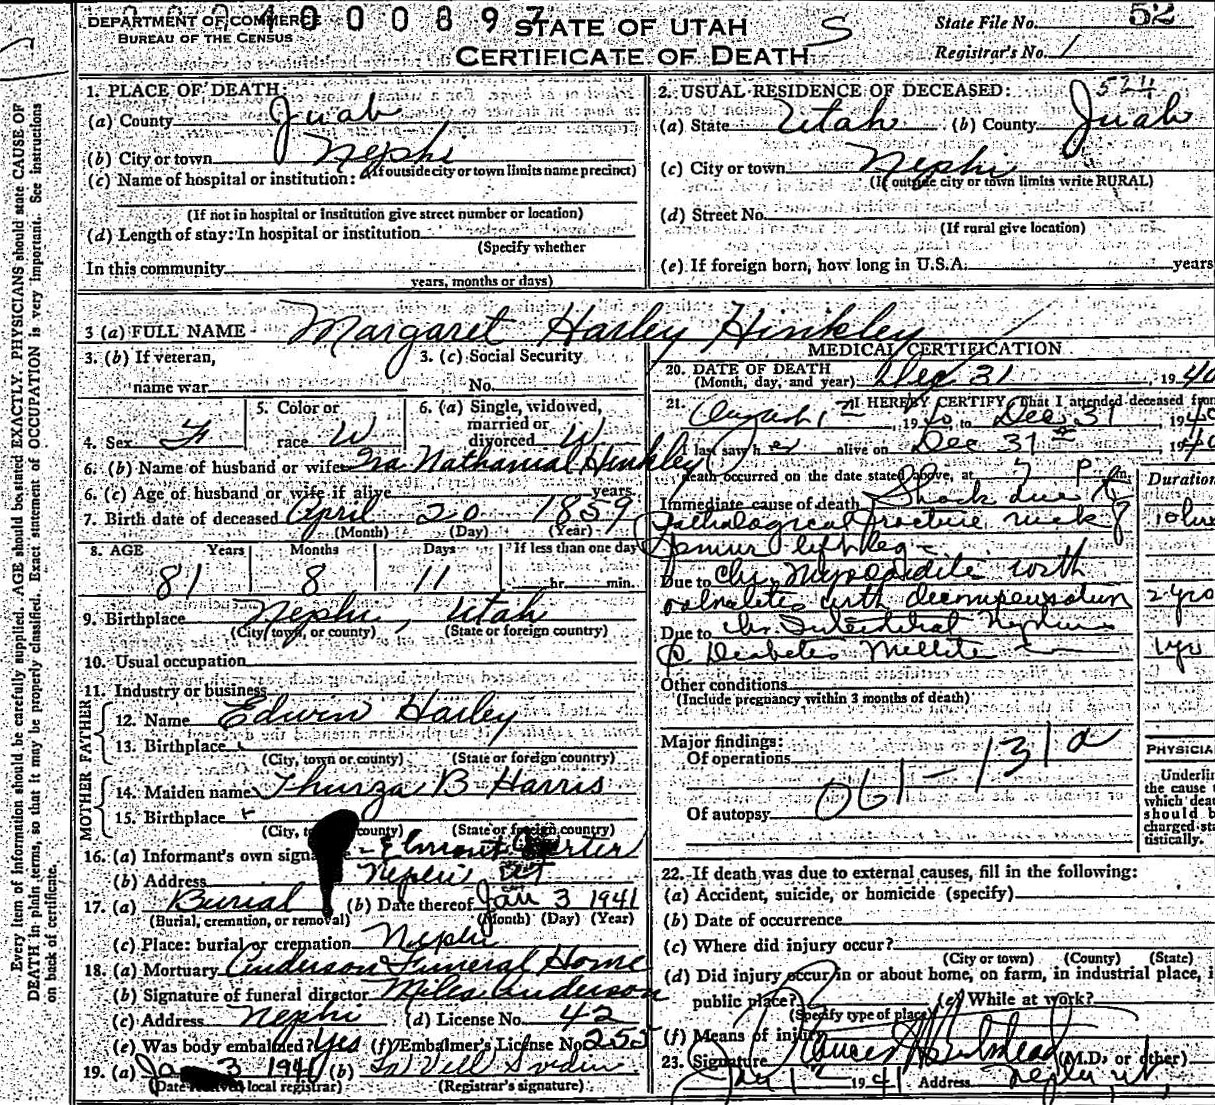 DEPARTMENT OF COMMERCE
BUREAU OF THE CENSUS
STATE OF UTAH
CERTIFICATE OF DEATH
S
State File No. 52
Registrar's No. 1
1. PLACE OF DEATH:
(a) County Juab
(b) City or town Nephi
(If outside city or town limits name precinct)
(c) Name of hospital or institution:
(If not in hospital or institution give street number or location)
(d) Length of stay: In hospital or institution
(Specify whether
In this community
years, months or days)
2. USUAL RESIDENCE OF DECEASED: 524
(a) State Utah (b) County Juab
(c) City or town Nephi
(If outside city or town limits write RURAL)
(d) Street No.
(If rural give location)
(e) If foreign born, how long in U.S.A. years
3 (a) FULL NAME Margaret Harley Hinkley
3. (b) If veteran,
name war
3. (c) Social Security
No.
4. Sex F
5. Color or
race W
6. (a) Single, widowed,
married or
divorced W
6. (b) Name of husband or wife Ira Nathanial Hinkley
6. (c) Age of husband or wife if alive years
7. Birth date of deceased April 20 1859
(Month) (Day) (Year)
8. AGE Years Months Days If less than one day
81 8 11 hr. min.
9. Birthplace Nephi, Utah
(City, town, or county) (State or foreign country)
10. Usual occupation
11. Industry or business
FATHER
12. Name Edwin Harley
13. Birthplace
(City, town or county) (State or foreign country)
MOTHER
14. Maiden name Thurza B Harris
15. Birthplace
(City, town or county) (State or foreign country)
16. (a) Informant's own signature
(b) Address Nephi Ut
17. (a) Burial (b) Date thereof Jan 3 1941
(Burial, cremation, or removal) (Month) (Day) (Year)
(c) Place: burial or cremation Nephi
18. (a) Mortuary Anderson Funeral Home
(b) Signature of funeral director Miles Anderson
(c) Address Nephi (d) License No. 42
(e) Was body embalmed? Yes (f) Embalmer's License No. 255
19. (a) Jan 3 1941 (b)
(Date received local registrar) (Registrar's signature)
MEDICAL CERTIFICATION
20. DATE OF DEATH
(Month, day, and year) Dec 31, 1940
21. I HEREBY CERTIFY, That I attended deceased from
August 1, 1940 to Dec 31 1940
I last saw her alive on Dec 31 1940
death occurred on the date stated above, at 7 P m.
Duration
Immediate cause of death Shock due to
Pathological fracture neck of
femur left leg
Due to Chr. Myocarditis with
with decompensation 2 yrs
Due to Chr. Interstitial
Diabetes Mellitis 1 yr
Other conditions
(Include pregnancy within 3 months of death)
Major findings:
Of operations
061-131a
Of autopsy
PHYSICIA
Underlin
the cause t
which deat
should b
charged sta
tistically.
22. If death was due to external causes, fill in the following:
(a) Accident, suicide, or homicide (specify)
(b) Date of occurrence
(c) Where did injury occur?
(City or town) (County) (State)
(d) Did injury occur in or about home, on farm, in industrial place, i
public place? (e) While at work?
(Specify type of place)
(f) Means of injury
23. Signature (M.D. or other)
1941 Address Nephi Ut
Every item of information should be carefully supplied. AGE should be stated EXACTLY. PHYSICIANS should state CAUSE OF
DEATH in plain terms, so that it may be properly classified. Exact statement of OCCUPATION is very important. See instructions
on back of certificate.